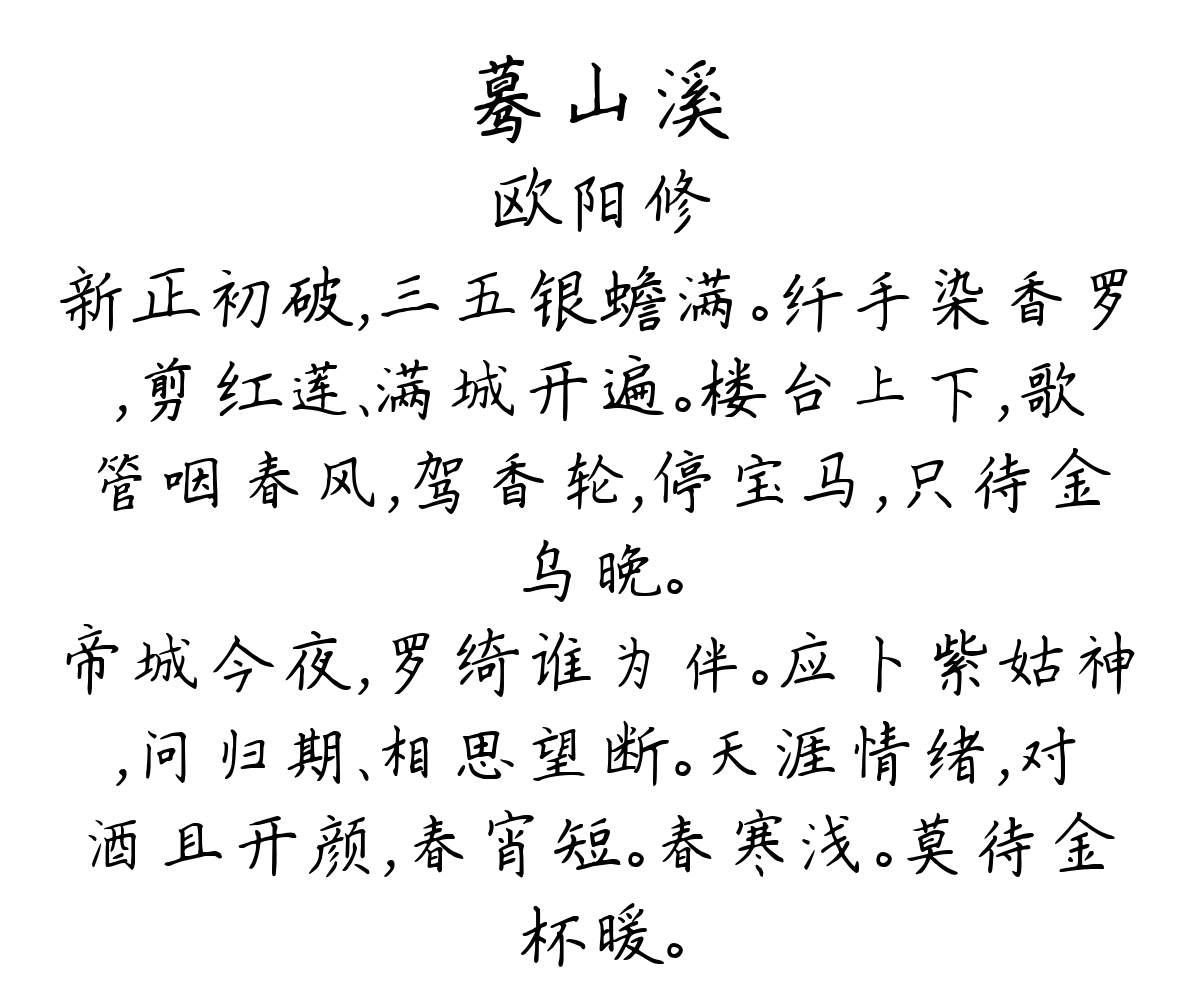 蓦山溪
欧阳修
新正初破,三五银蟾满。纤手染香罗
,剪红莲、满城开遍。楼台上下,歌
管咽春风,驾香轮,停宝马,只待金
乌晚。
帝城今夜,罗绮谁为伴。应卜紫姑神
,问归期、相思望断。天涯情绪,对
酒且开颜,春宵短。春寒浅。莫待金
杯暖。